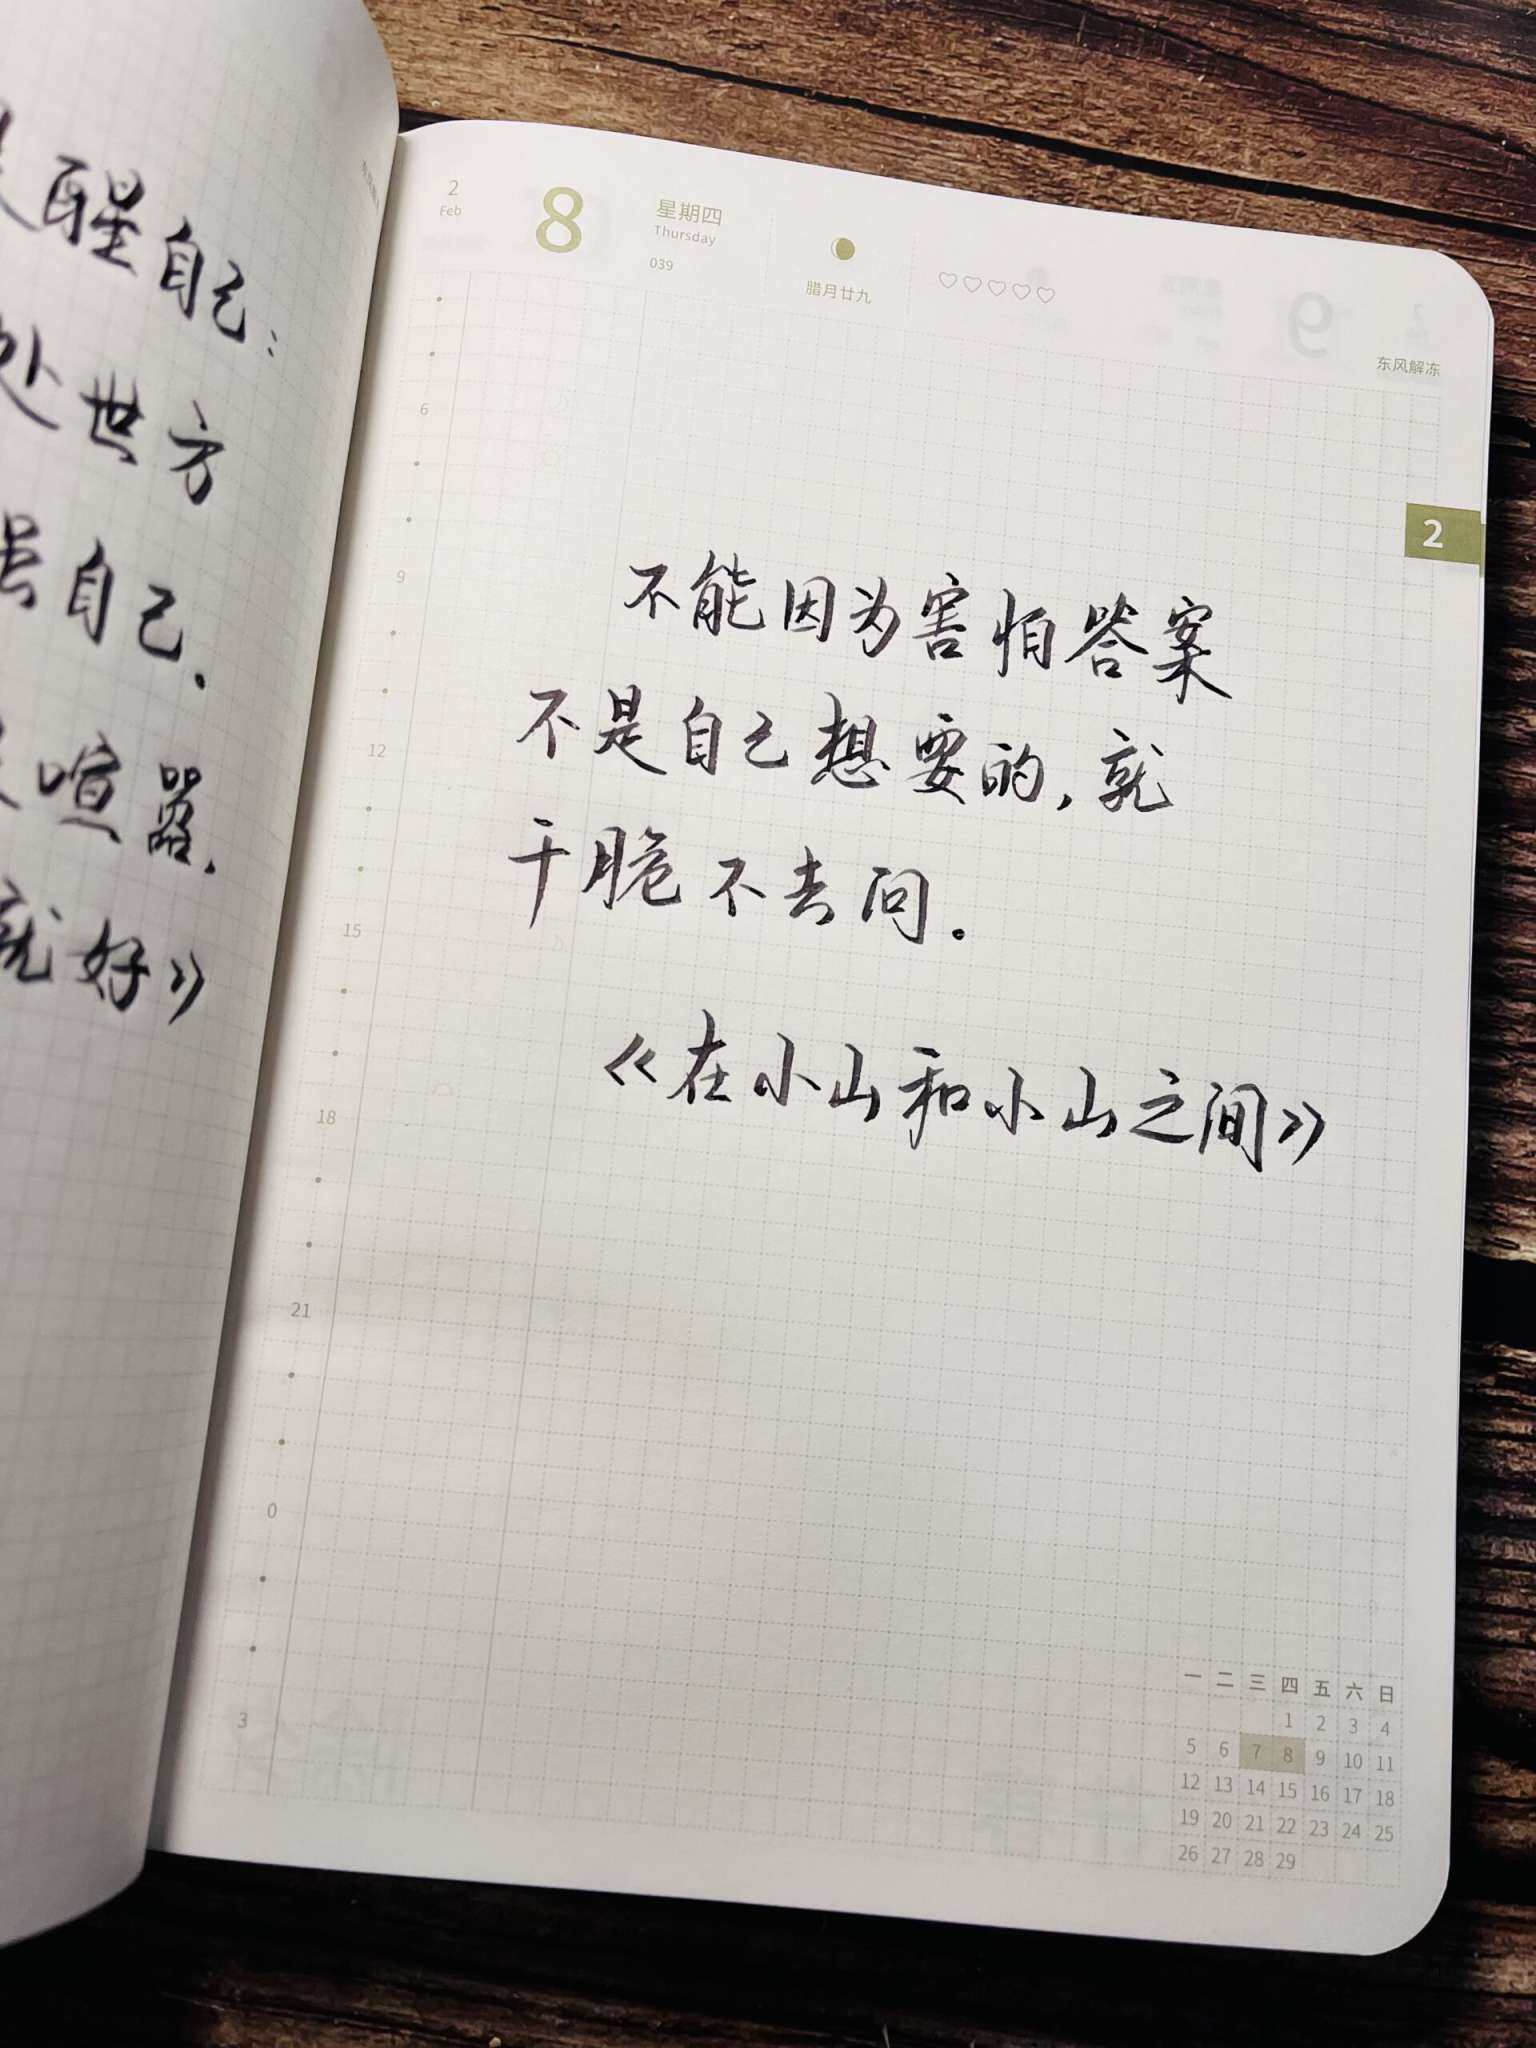 醒自己:
处世方
自己.
喧嚣,
就好》
2
Feb
8
星期四
Thursday
039
腊月廿九
东风解冻
2
6
9
12
15
18
21
0
3
不能因为害怕答案
不是自己想要的,就
干脆不去问.
《在小山和小山之间》
一 二 三 四 五 六 日
1 2 3 4
5 6 7 8 9 10 11
12 13 14 15 16 17 18
19 20 21 22 23 24 25
26 27 28 29